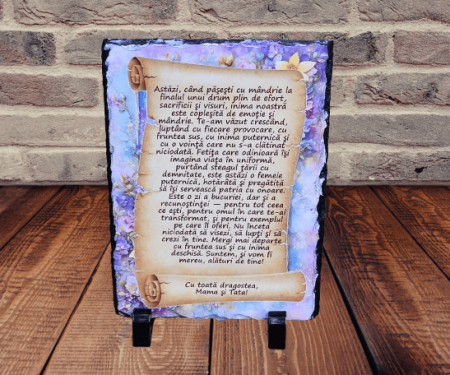 Astăzi, când pășești cu mândrie la
finalul unui drum plin de efort,
sacrificii și visuri, inima noastră
este copleșită de emoție și
mândrie. Te-am văzut crescând,
luptând cu fiecare provocare, cu
fruntea sus, cu inima puternică și
cu o voință care nu s-a clătinat
niciodată. Fetița care odinioară își
imagina viața în uniformă,
purtând steagul țării cu
demnitate, este astăzi o femeie
puternică, hotărâtă și pregătită
să își servească patria cu onoare.
Este o zi a bucuriei, dar și a
recunoștinței — pentru tot ceea
ce ești, pentru omul în care te-ai
transformat, și pentru exemplul
pe care îl oferi. Nu înceta
niciodată să visezi, să lupți și să
crezi în tine. Mergi mai departe
cu fruntea sus și cu inima
deschisă. Suntem, și vom fi
mereu, alături de tine!
Cu toată dragostea,
Mama și Tata!